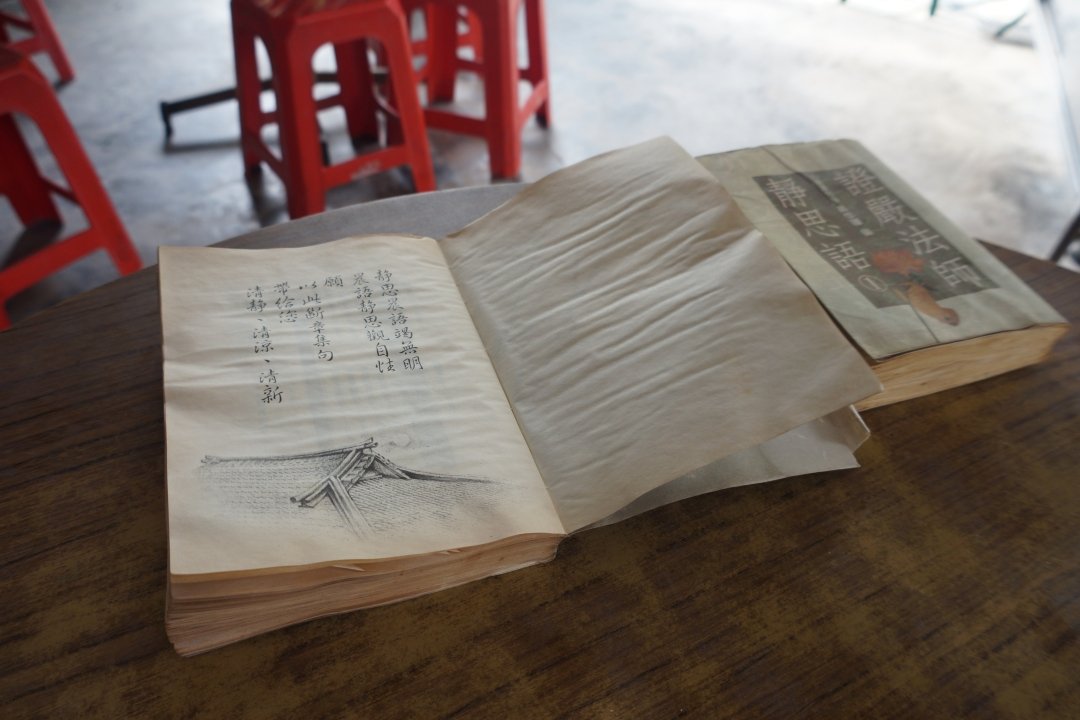 靜思晨語謁無明
晨語靜思觀自性
願
以此斷章集句
帶給您
清靜、清涼、清新
證嚴法師
靜思語①